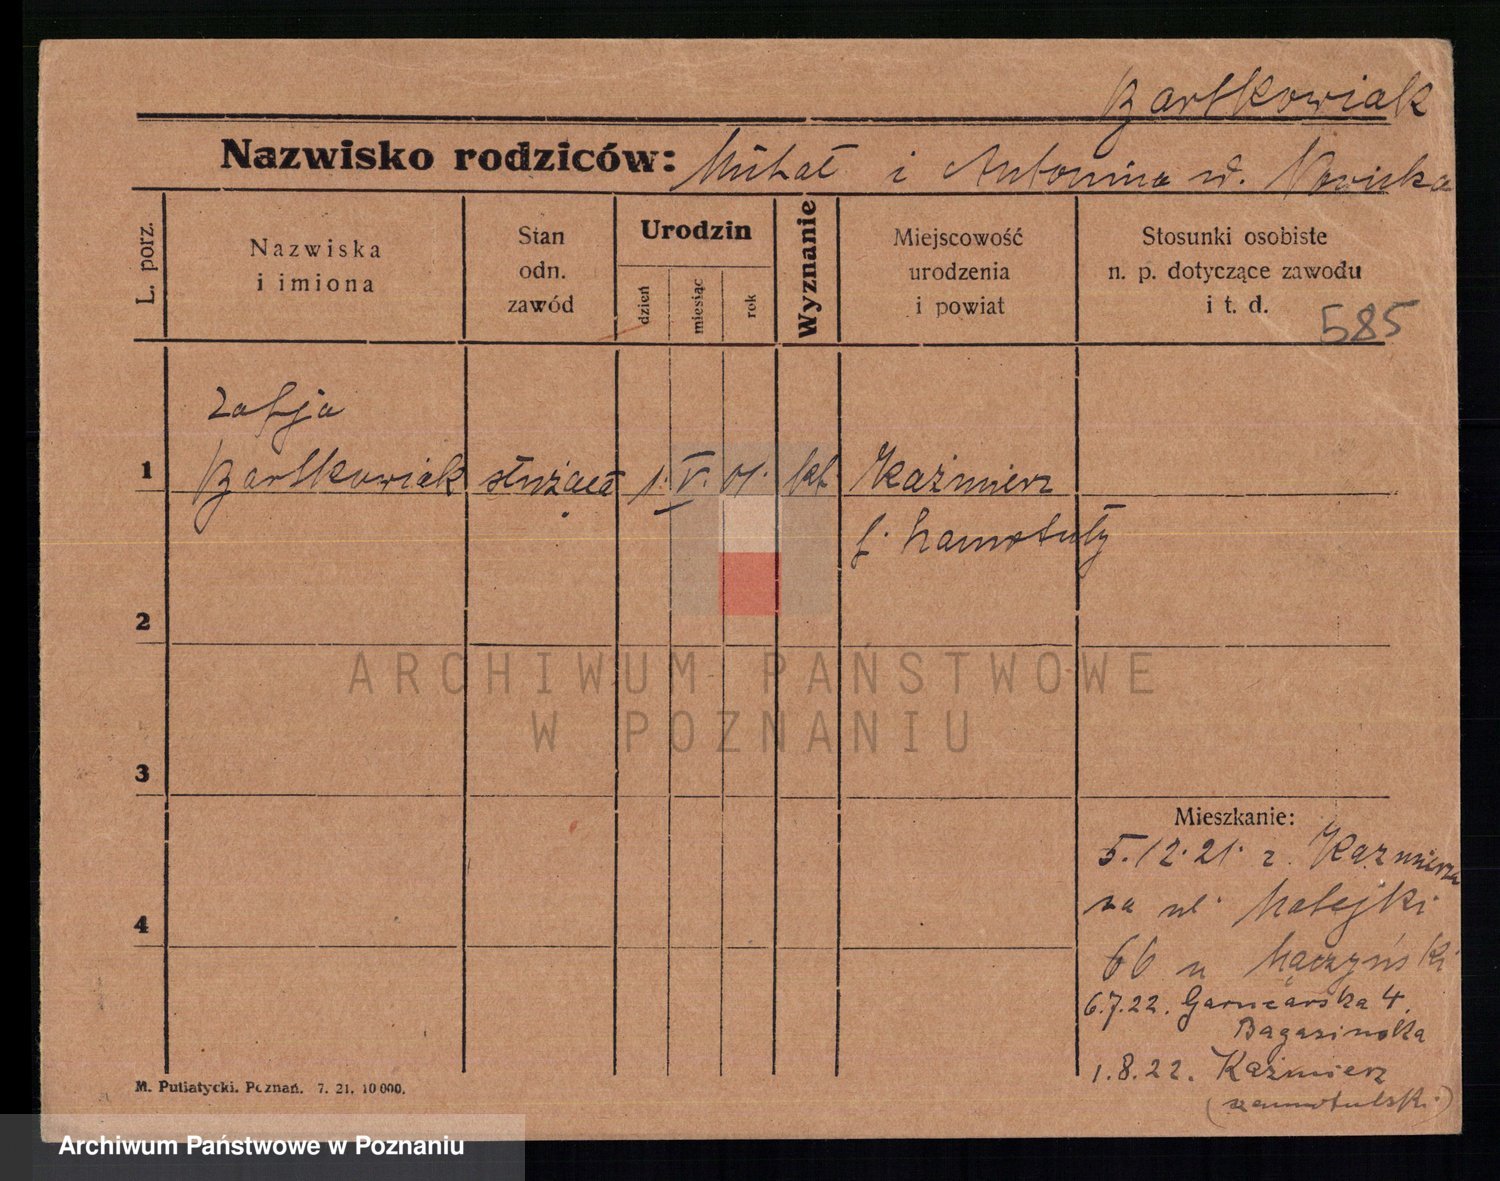 Bartkowiak
Nazwisko rodziców: Michał i Antonina z d. Nowicka
L. porz.
Nazwiska
i imiona
Stan
odn.
zawód
Urodzin
dzień
miesiąc
rok
Wyznanie
Miejscowość
urodzenia
i powiat
Stosunki osobiste
n. p. dotyczące zawodu
i t. d.
585
Zofja
1 Bartkowiak służąca 1. V. 01. kt. Kaźmierz
Szamotuły
2
3
4
Mieszkanie:
5.12.21. z Kaźmierza
na ul. Matejki
66 u Mączyński
6.7.22. Garncarska 4.
1.8.22. Kaźmierz
(szamotulski)
M. Putiatycki. Poznań. 7. 21. 10 000.
ARCHIWUM PAŃSTWOWE
W POZNANIU
Archiwum Państwowe w Poznaniu